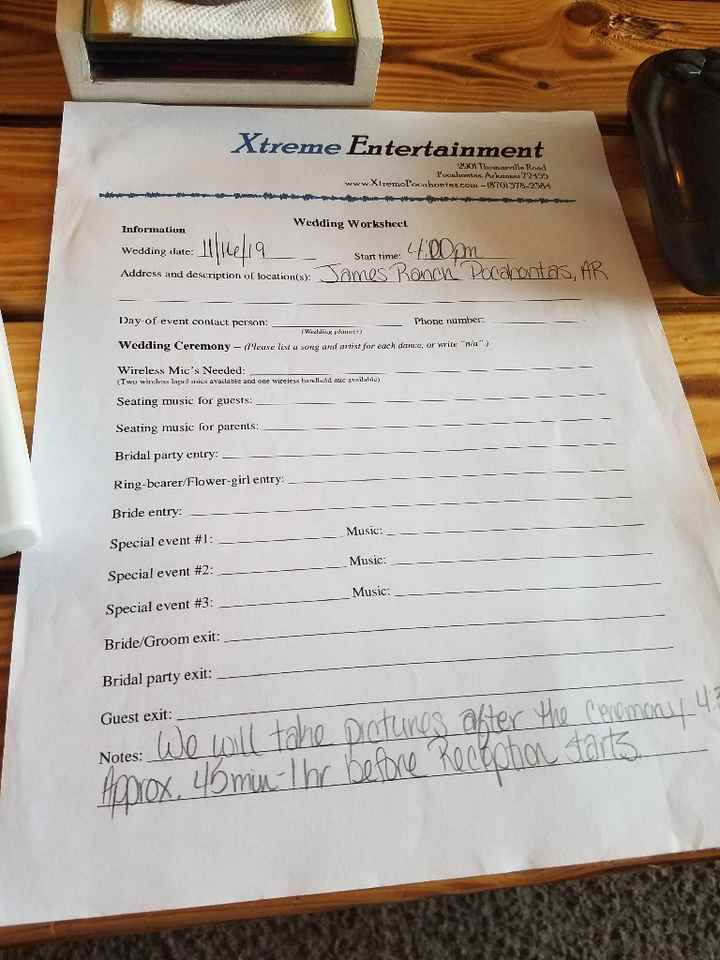 Xtreme Entertainment
2901 Thomasville Road
Pocahontas, Arkansas 72455
www.XtremePocahontas.com - (870)378-2384
Wedding Worksheet
Information
Wedding date: 11/16/19 Start time: 4:00pm
Address and description of location(s): James Ranch Pocahontas, AR
Day-of event contact person: Phone number:
(Wedding planner)
Wedding Ceremony – (Please list a song and artist for each dance, or write "n/a".)
Wireless Mic's Needed:
(Two wireless lapel mics available and one wireless handheld mic available)
Seating music for guests:
Seating music for parents:
Bridal party entry:
Ring-bearer/Flower-girl entry:
Bride entry:
Special event #1: Music:
Special event #2: Music:
Special event #3: Music:
Bride/Groom exit:
Bridal party exit:
Guest exit:
Notes: We will take pictures after the ceremony
Approx. 45min-1hr before Reception starts